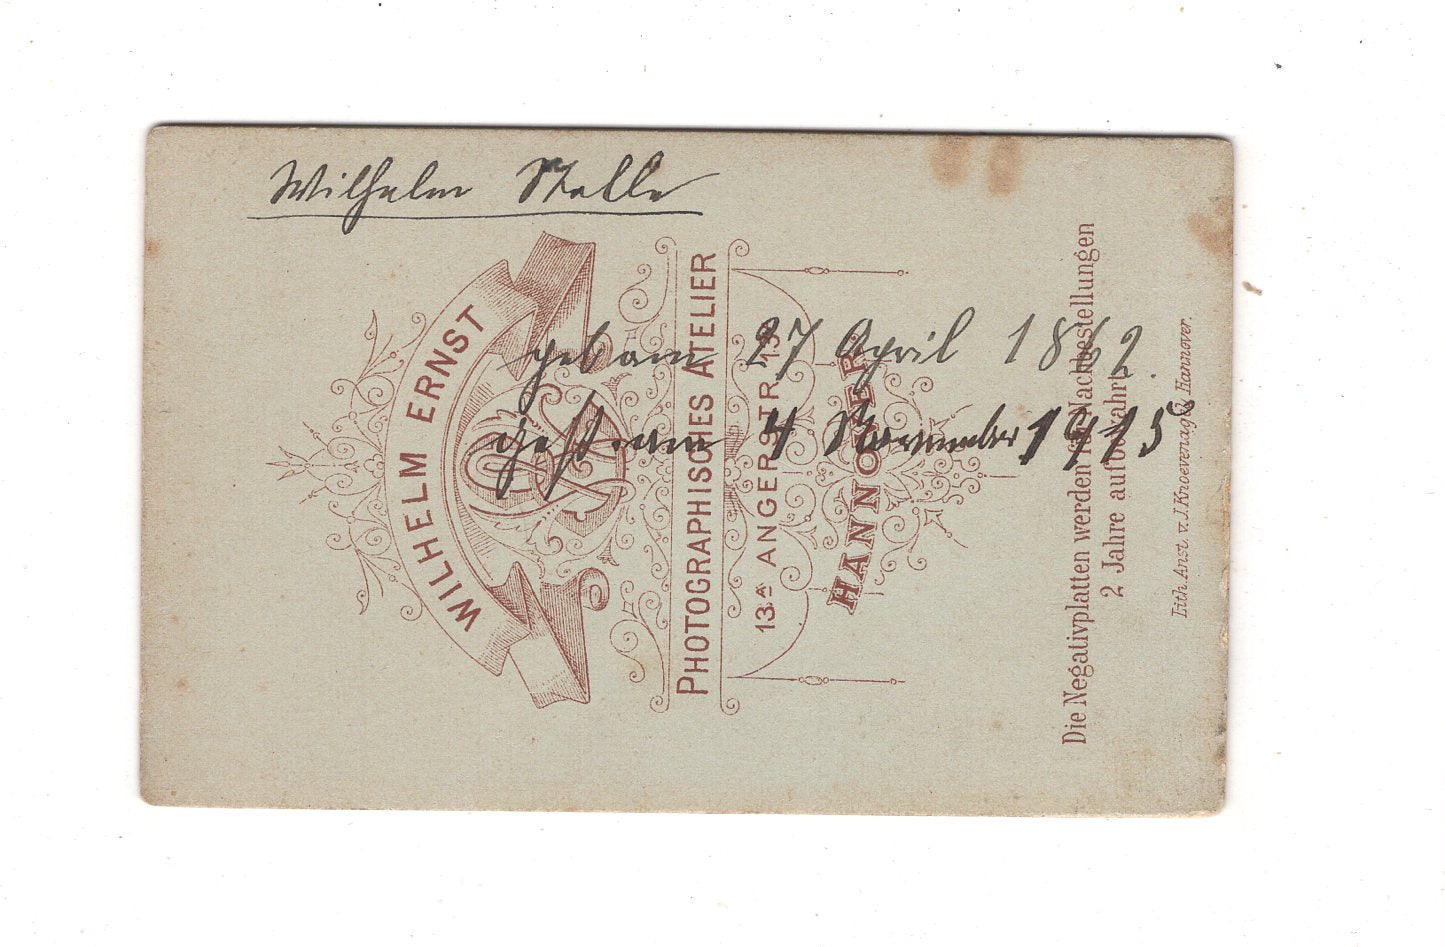 Wilhelm Stelle
geb am 27 April 1862.
gest. am 4 November 1915
WILHELM ERNST
PHOTOGRAPHISCHES ATELIER
13A ANGERSTR. 13A
HANNOVER
Die Negativplatten werden für Nachbestellungen
2 Jahre aufbewahrt.
Lith. Anst. v. J. Knoevenagel, Hannover.